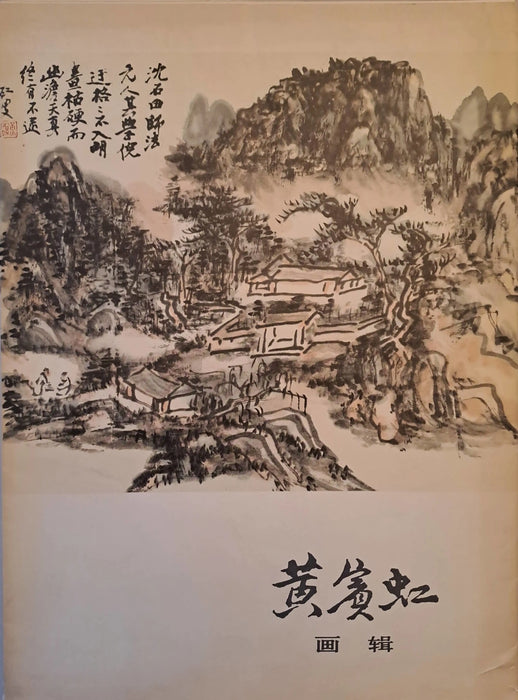 沈石田師法
元人其學倪
迂格々不入明
畫枯硬而
幽澹天真
終有不逮
虹叟
黄賓虹
画辑